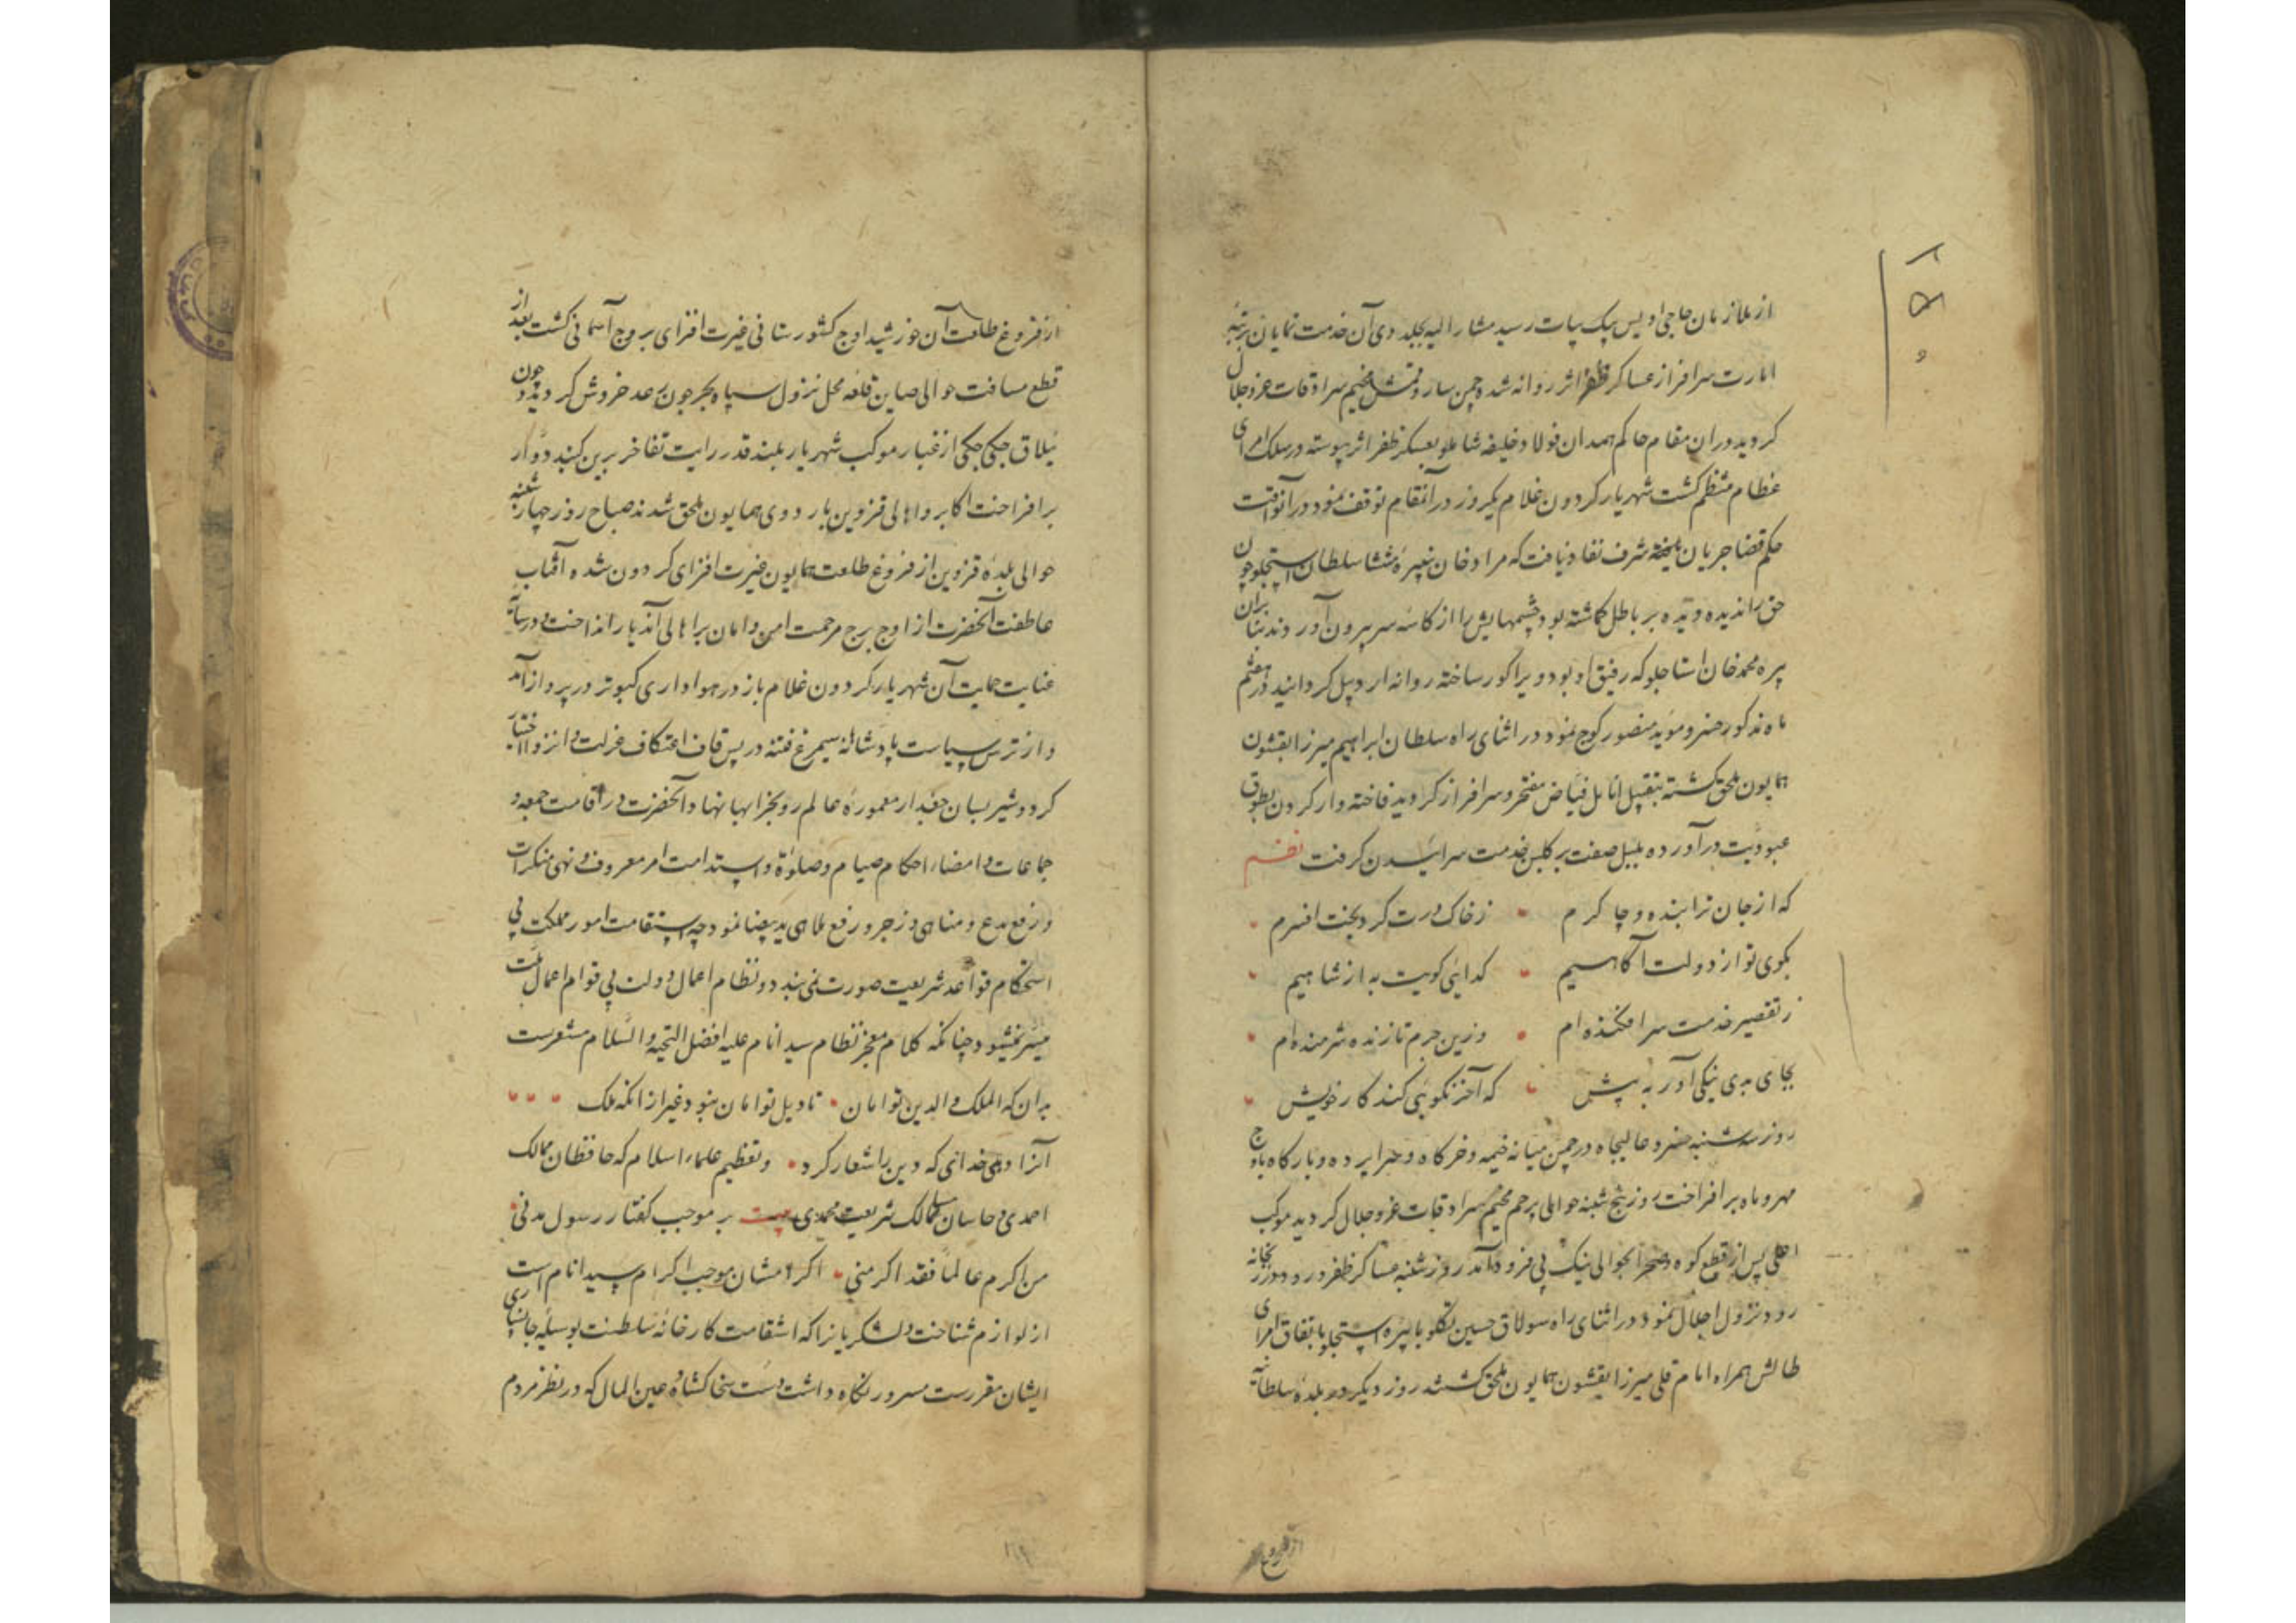 از ملازمان حاجی اویس بیک بیات رسید مشار الیه بجلدوی آن خدمت نمایان برتبه
امارت سرافراز عساکر ظفر اثر روانه شد و چمن سارو قمش مخیم سرادقات عز و جلال
کردید در ان مقام حاکم همدان فولاد خلیفه شاملو بعسکر ظفر اثر پیوسته در سلک امرای
عظام منتظم کشت شهریار کردون غلام یکروز در آنمقام توقف نمود در آنوقت
حکم قضا جریان شرف نفاذ یافت که مراد خان نبیره منتشا سلطان استجلو چون
حق را ندیده و دیده بر باطل کماشته بود چشمهایش را از کاسه سر بیرون آوردند بنابران
پره محمد خان استاجلو که رفیق او بود ویرا کور ساخته روانه اردبیل کردانید در هشتم
ماه مذکور خسرو موید منصور کوچ نمود در اثنای راه سلطان ابراهیم میرزا بقشون
همایون ملحق کشته بتقبیل انامل فیاض مفتخر و سرافراز کردید فاخته وار کردن بطوق
عبودیت در آورده بلبل صفت بر کلبن خدمت سراییدن کرفت نظم
که از جان ترا بنده و چاکرم زخاک درت کرد بخت افسرم
بکوی تو از دولت آکاهیم کدایی کویت به از شاهیم
ز تقصیر خدمت سرافکنده ام وزین جرم تا زنده شرمنده ام
بجای بدی نیکی آور به پیش که آخر نکویی کند کار خویش
روز سه شنبه خسرو عالیجاه در چمن میانه خیمه و خرکاه و سراپرده و بارکاه باوج
مهر و ماه برافراخت روز پنج شنبه حوالی پرچم مخیم سرادقات عز و جلال کردید موکب
اعلی پس از قطع کوه و صحرا بحوالی نیک پی فرود آمد روز شنبه عساکر ظفر ورود در زنجانه
رود نزول اجلال نمود در اثنای راه سولاق حسین تکلو با پیره استجلو باتفاق امرای
طالش همراه امام قلی میرزا بقشون همایون ملحق کشتند روز دیکر بلده سلطانیه
از فروغ
از فروغ طلعت آن خورشید اوج کشورستانی غیرت افزای بروج آسمانی کشت بعد از
قطع مسافت حوالی صاین قلعه محل نزول سپاه بحر جون رعد خروش کردید و چون
ییلاق جکی جکی از غبار موکب شهریار بلند قدر رایت تفاخر برین کنبد دوار
برافراخت اکابر و اهالی قزوین باردوی همایون ملحق شدند صباح روز چهارشنبه
حوالی بلده قزوین از فروغ طلعت همایون غیرت افزای کردون شده آفتاب
عاطفت آنحضرت از اوج برج مرحمت امن و امان بر اهالی آندیار انداخت و در سایه
عنایت حمایت آن شهریار کردون غلام باز در هواداری کبوتر در پرواز آمد
و از ترس سیاست پادشاهانه سیمرغ فتنه در پس قاف اعتکاف عزلت و انزوا اختیار
کرد و شیر بسان جغد از معموره عالم رو بخرابها نهاد آنحضرت در اقامت جمعه و
جماعات و امضاء احکام صیام و صلوة و استدامت امر معروف و نهی منکرات
و رفع بدع و مناهی و زجر و رفع ملاهی ید بیضا نمود چه استقامت امور مملکت بی
استحکام قواعد شریعت صورت نمی بندد و نظام اعمال دولت بی قوام اعمال ملت
میسر نمیشود چنانکه کلام معجز نظام سید انام علیه افضل التحیه و السلام مشعرست
بدان که الملک و الدین توامان تاویل توامان نبود غیر از انکه ملک
آنرا دهی خدای که دین را شعار کرد و تعظیم علماء اسلام که حافظان ممالک
احمدی و حامیان مسالک شریعت محمدی بر موجب کفتار رسول مدنی
من اکرم عالما فقد اکرمنی اکرامشان موجب اکرام سید انام است
از لوازم شناخت و لشکریانرا که استقامت کارخانه سلطنت بوسیله جانسپاری
ایشان مقررست مسرور نکاه داشت دست سخا کشاده عین المال که در نظر مردم